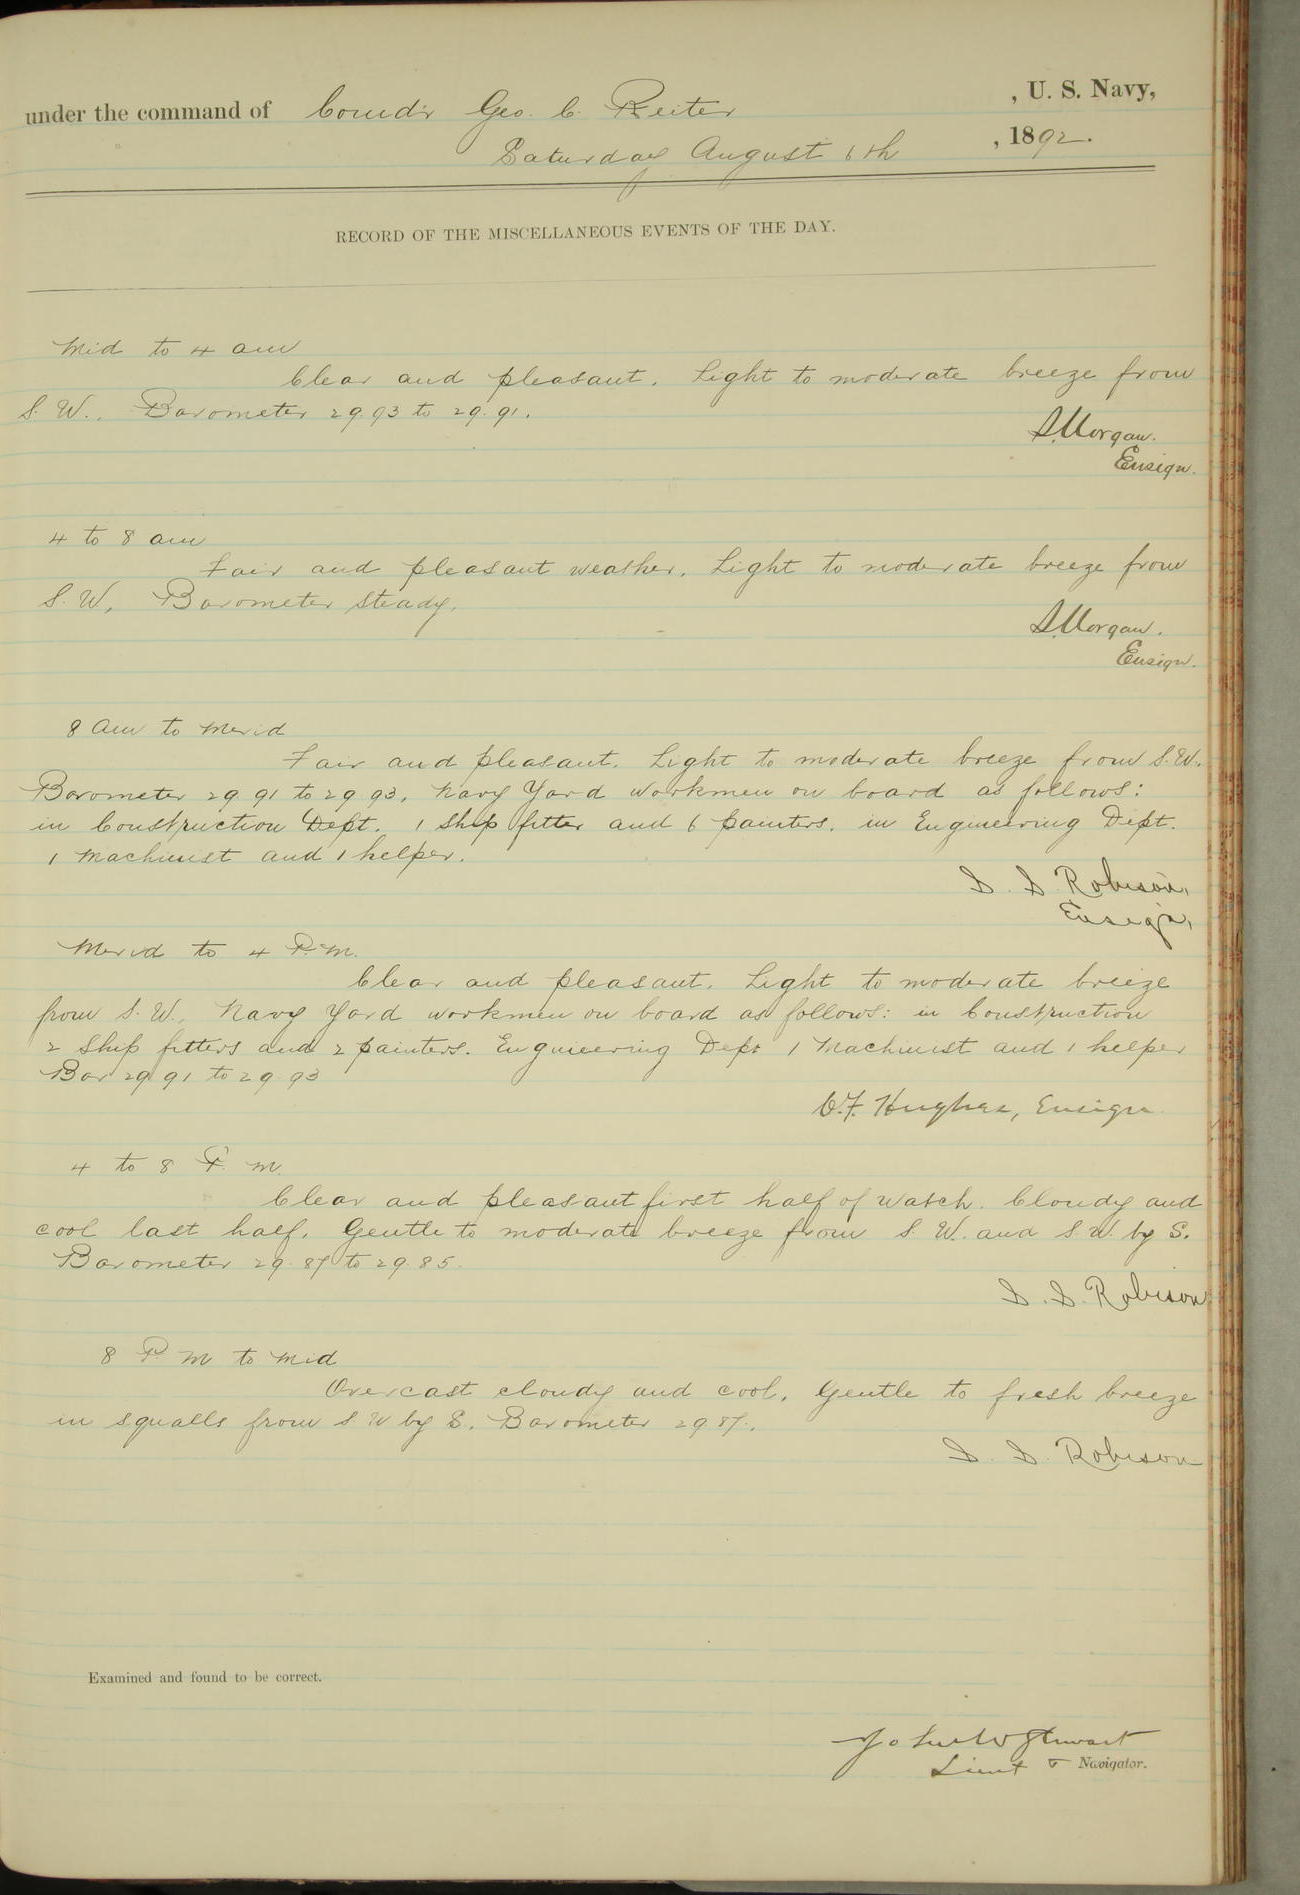 under the command of Comd'r Geo. C. Reiter , U. S. Navy,
Saturday August 6th , 1892.
RECORD OF THE MISCELLANEOUS EVENTS OF THE DAY.
Mid to 4 am
Clear and pleasant. Light to moderate breeze from
S. W.. Barometer 29.93 to 29.91.
S. Morgan.
Ensign.
4 to 8 am
Fair and pleasant weather. Light to moderate breeze from
S. W, Barometer steady.
S. Morgan.
Ensign.
8 am to Merid
Fair and pleasant. Light to moderate breeze from S. W.
Barometer 29 91 to 29 93. Navy Yard workmen on board as follows:
in Construction Dept. 1 ship fitter and 6 painters. in Engineering Dept.
1 Machinist and 1 helper.
S. S. Robison,
Ensign,
Merid to 4 P.M.
Clear and pleasant. Light to moderate breeze
from S. W.. Navy Yard workmen on board as follows: in Construction
2 ship fitters and 2 painters. Engineering Dept 1 Machinist and 1 helper
Bar 29 91 to 29 93
C. F. Hughes, Ensign
4 to 8 P. M.
Clear and pleasant first half of watch. Cloudy and
cool last half. Gentle to moderate breeze from S. W. and S. W. by S.
Barometer 29.87 to 29.85.
S. S. Robison
8 P M to Mid
Overcast cloudy and cool. Gentle to fresh breeze
in squalls from S W by S. Barometer 29 87.
S. S. Robison
Examined and found to be correct.
John W Stewart
Lieut & Navigator.